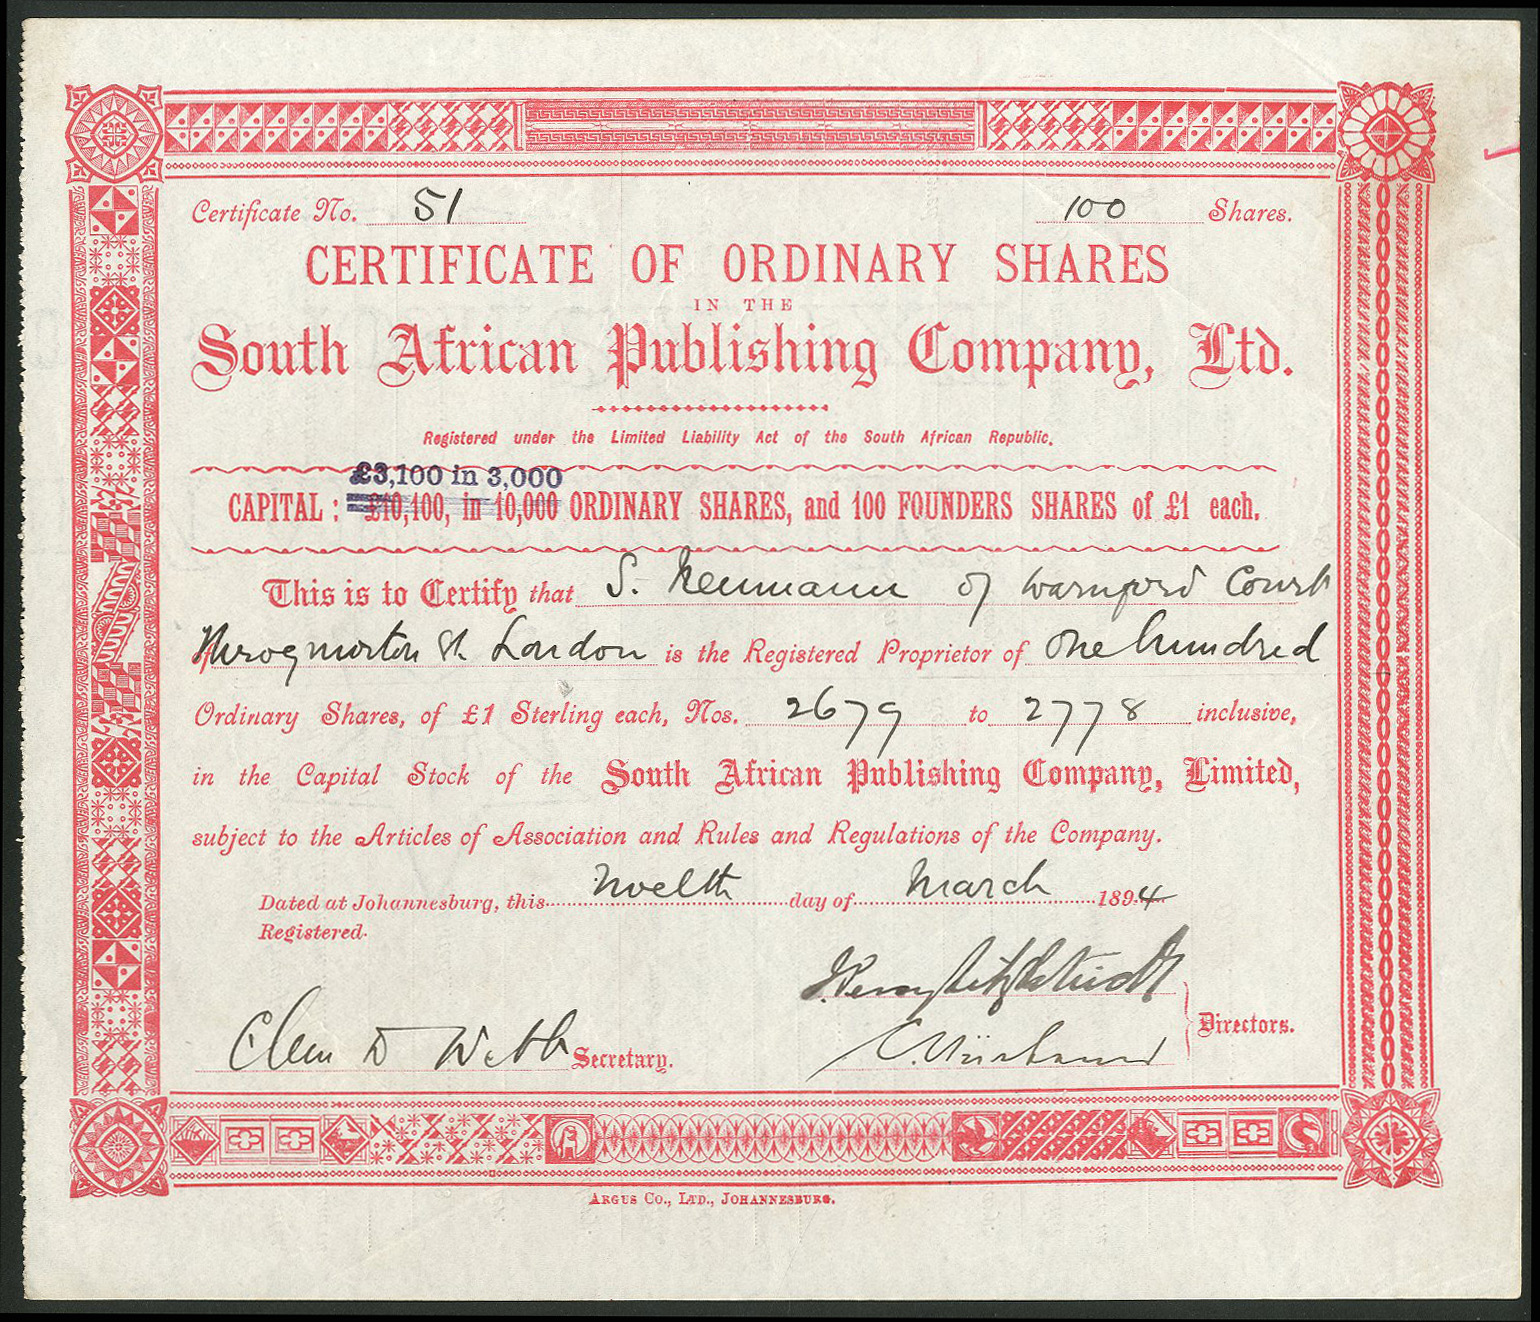 Certificate No. 51 100 Shares.
CERTIFICATE OF ORDINARY SHARES
IN THE
South African Publishing Company, Ltd.
Registered under the Limited Liability Act of the South African Republic.
£3,100 in 3,000
CAPITAL: £10,100, in 10,000 ORDINARY SHARES, and 100 FOUNDERS SHARES of £1 each.
This is to Certify that S. Neumann of Warnford Court
Throgmorton St London is the Registered Proprietor of One hundred
Ordinary Shares, of £1 Sterling each, Nos. 2679 to 2778 inclusive,
in the Capital Stock of the South African Publishing Company, Limited,
subject to the Articles of Association and Rules and Regulations of the Company.
Dated at Johannesburg, this Twelth day of March 1894
Registered.
Directors.
Webb Secretary.
ARGUS CO., LTD., JOHANNESBURG.